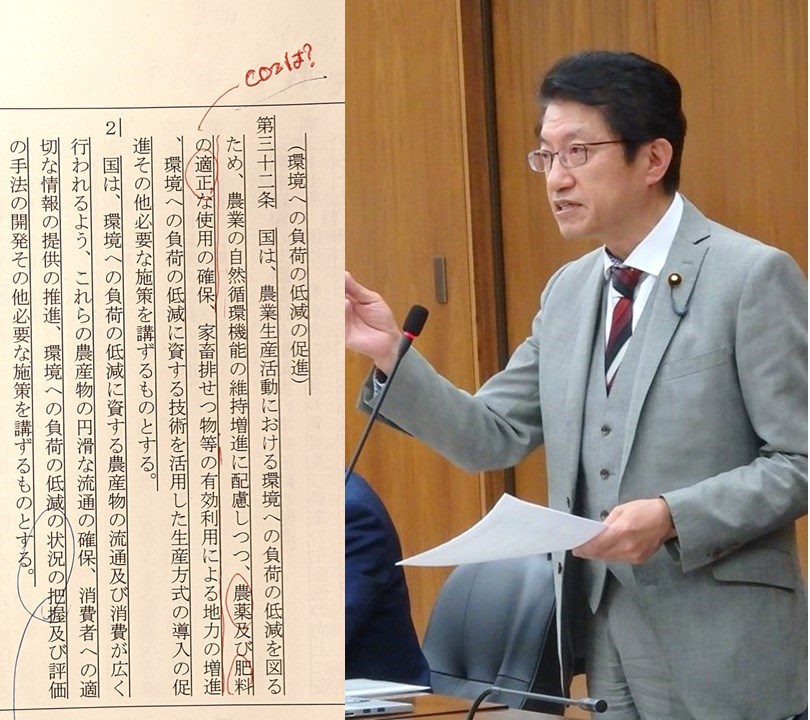 CO2は?
（環境への負荷の低減の促進）
第三十二条　国は、農業生産活動における環境への負荷の低減を図る
ため、農業の自然循環機能の維持増進に配慮しつつ、農薬及び肥料
の適正な使用の確保、家畜排せつ物等の有効利用による地力の増進
、環境への負荷の低減に資する技術を活用した生産方式の導入の促
進その他必要な施策を講ずるものとする。
2　国は、環境への負荷の低減に資する農産物の流通及び消費が広く
行われるよう、これらの農産物の円滑な流通の確保、消費者への適
切な情報の提供の推進、環境への負荷の低減の状況の把握及び評価
の手法の開発その他必要な施策を講ずるものとする。